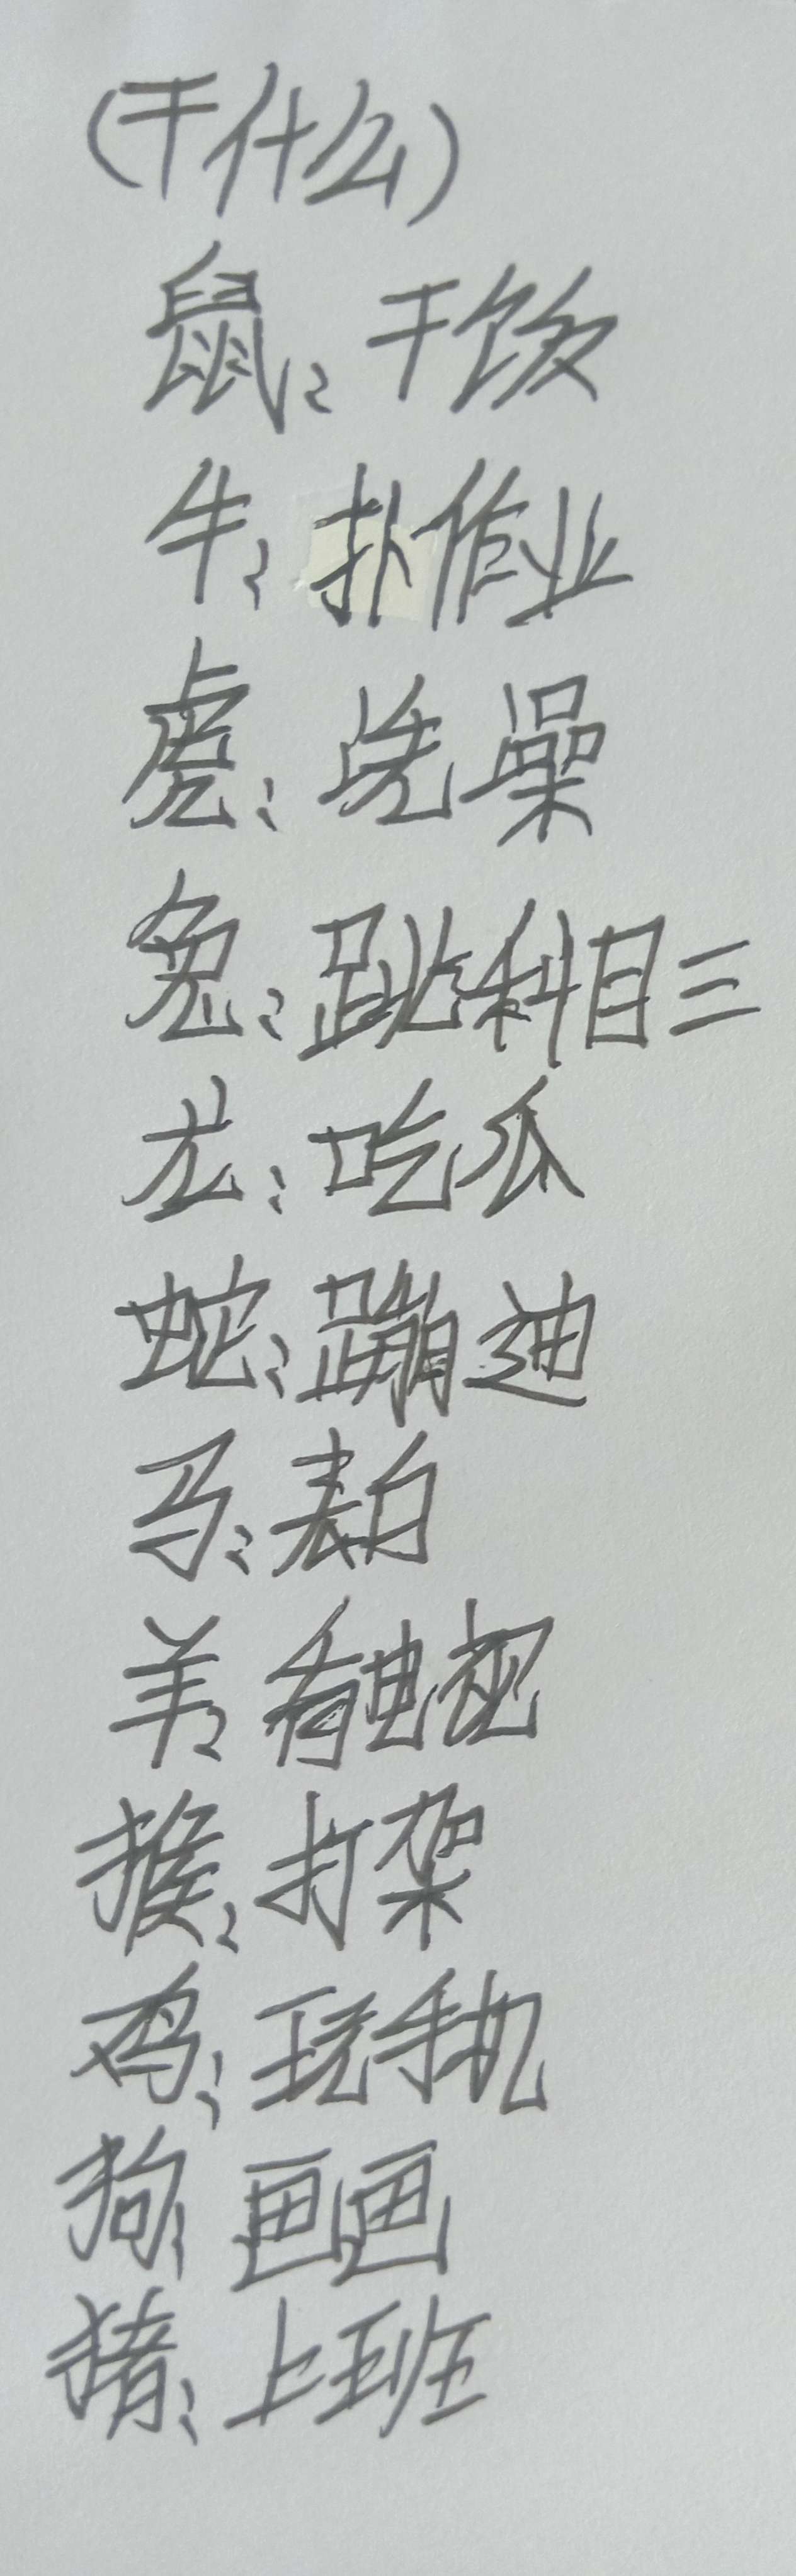 (干什么)
鼠:干饭
牛:扑作业
虎:洗澡
兔:跳科目三
龙:吃瓜
蛇:蹦迪
马:表白
羊:看电视
猴:打架
鸡:玩手机
狗:画画
猪:上班